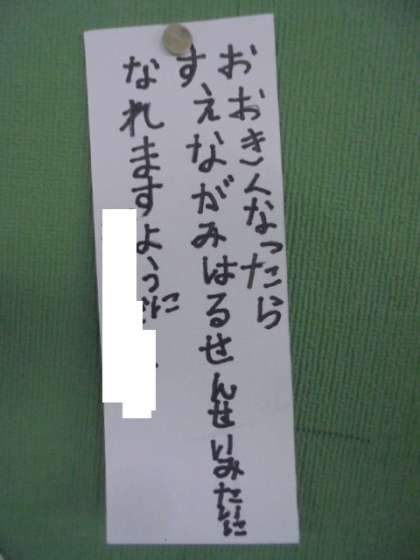 おおきくなったら
すえながみはるせんせいみたいに
なれますように